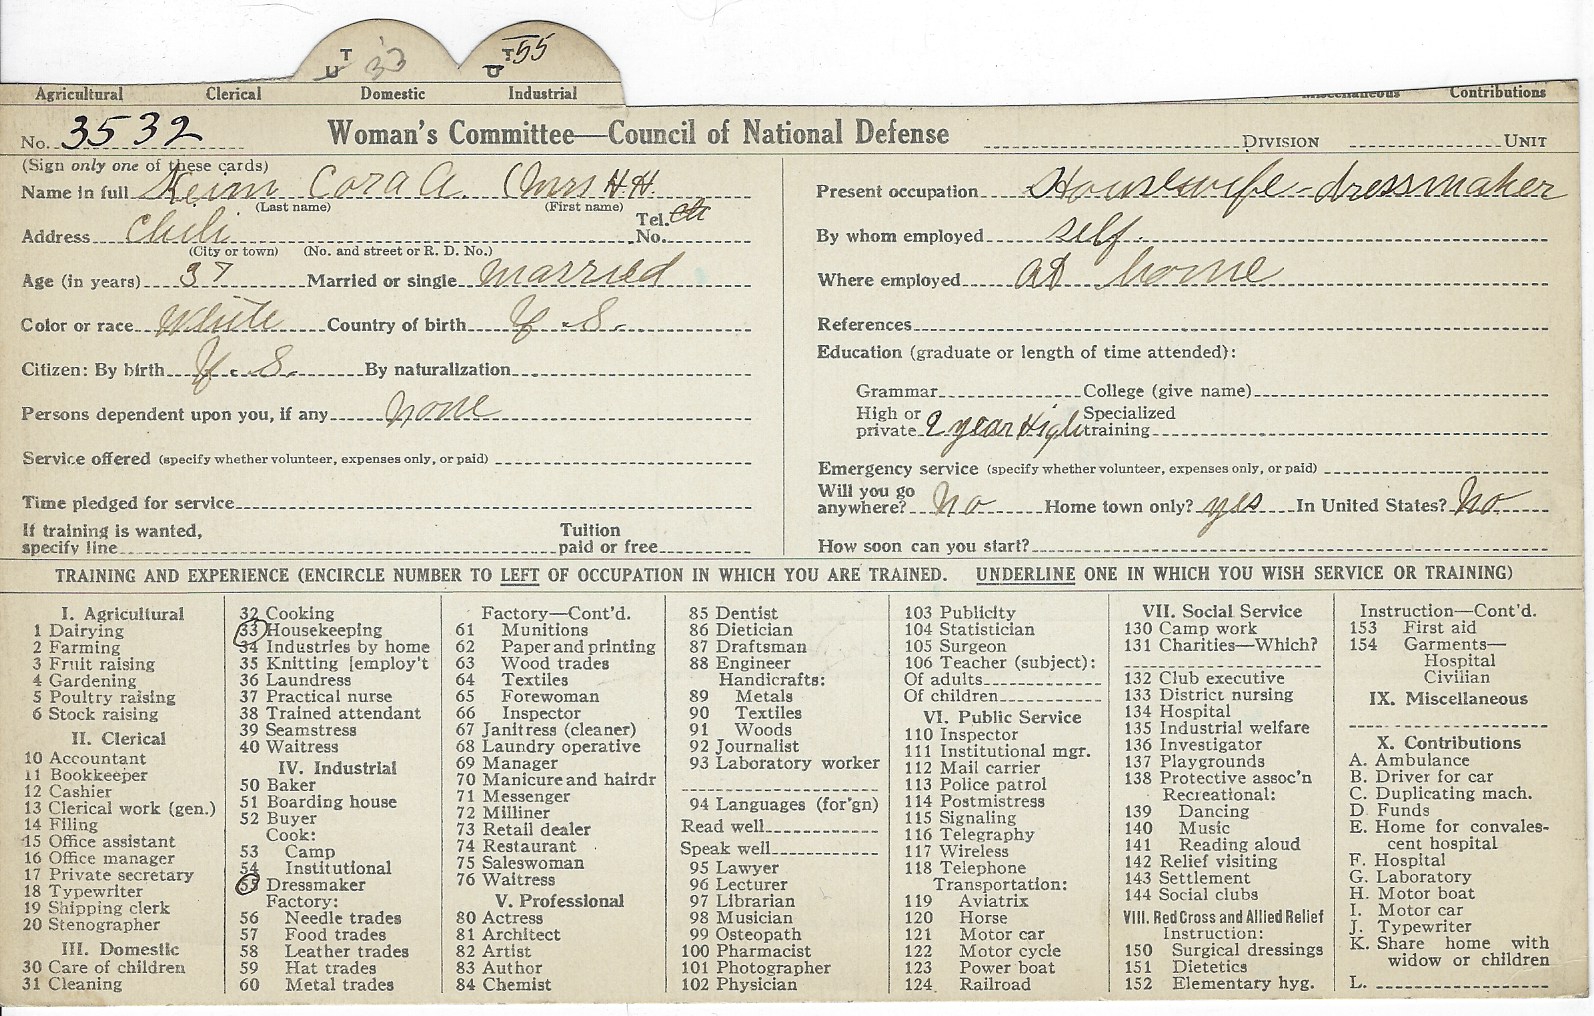 T U 33 T U 55
Agricultural Clerical Domestic Industrial Miscellaneous Contributions
No. 3532 Woman's Committee—Council of National Defense DIVISION UNIT
(Sign only one of these cards)
Name in full Keim Cora A. (Mrs H.H.
(Last name) (First name)
Address Chili Tel. No.
(City or town) (No. and street or R. D. No.)
Age (in years) 37 Married or single married
Color or race White Country of birth U.S.
Citizen: By birth U.S. By naturalization
Persons dependent upon you, if any none
Service offered (specify whether volunteer, expenses only, or paid)
Time pledged for service
If training is wanted, specify line Tuition paid or free
Present occupation Housewife-dressmaker
By whom employed self.
Where employed at home
References
Education (graduate or length of time attended):
Grammar College (give name)
High or private 2 year High Specialized training
Emergency service (specify whether volunteer, expenses only, or paid)
Will you go anywhere? No Home town only? yes In United States? No
How soon can you start?
TRAINING AND EXPERIENCE (ENCIRCLE NUMBER TO LEFT OF OCCUPATION IN WHICH YOU ARE TRAINED. UNDERLINE ONE IN WHICH YOU WISH SERVICE OR TRAINING)
I. Agricultural
1 Dairying
2 Farming
3 Fruit raising
4 Gardening
5 Poultry raising
6 Stock raising
II. Clerical
10 Accountant
11 Bookkeeper
12 Cashier
13 Clerical work (gen.)
14 Filing
15 Office assistant
16 Office manager
17 Private secretary
18 Typewriter
19 Shipping clerk
20 Stenographer
III. Domestic
30 Care of children
31 Cleaning
32 Cooking
33 Housekeeping
34 Industries by home
35 Knitting [employ't
36 Laundress
37 Practical nurse
38 Trained attendant
39 Seamstress
40 Waitress
IV. Industrial
50 Baker
51 Boarding house
52 Buyer
Cook:
53 Camp
54 Institutional
55 Dressmaker
Factory:
56 Needle trades
57 Food trades
58 Leather trades
59 Hat trades
60 Metal trades
Factory—Cont'd.
61 Munitions
62 Paper and printing
63 Wood trades
64 Textiles
65 Forewoman
66 Inspector
67 Janitress (cleaner)
68 Laundry operative
69 Manager
70 Manicure and hairdr
71 Messenger
72 Milliner
73 Retail dealer
74 Restaurant
75 Saleswoman
76 Waitress
V. Professional
80 Actress
81 Architect
82 Artist
83 Author
84 Chemist
85 Dentist
86 Dietician
87 Draftsman
88 Engineer
Handicrafts:
89 Metals
90 Textiles
91 Woods
92 Journalist
93 Laboratory worker
94 Languages (for'gn)
Read well
Speak well
95 Lawyer
96 Lecturer
97 Librarian
98 Musician
99 Osteopath
100 Pharmacist
101 Photographer
102 Physician
103 Publicity
104 Statistician
105 Surgeon
106 Teacher (subject):
Of adults
Of children
VI. Public Service
110 Inspector
111 Institutional mgr.
112 Mail carrier
113 Police patrol
114 Postmistress
115 Signaling
116 Telegraphy
117 Wireless
118 Telephone
Transportation:
119 Aviatrix
120 Horse
121 Motor car
122 Motor cycle
123 Power boat
124 Railroad
VII. Social Service
130 Camp work
131 Charities—Which?
132 Club executive
133 District nursing
134 Hospital
135 Industrial welfare
136 Investigator
137 Playgrounds
138 Protective assoc'n
Recreational:
139 Dancing
140 Music
141 Reading aloud
142 Relief visiting
143 Settlement
144 Social clubs
VIII. Red Cross and Allied Relief
Instruction:
150 Surgical dressings
151 Dietetics
152 Elementary hyg.
Instruction—Cont'd.
153 First aid
154 Garments—
Hospital
Civilian
IX. Miscellaneous
X. Contributions
A. Ambulance
B. Driver for car
C. Duplicating mach.
D. Funds
E. Home for convales-
cent hospital
F. Hospital
G. Laboratory
H. Motor boat
I. Motor car
J. Typewriter
K. Share home with
widow or children
L.